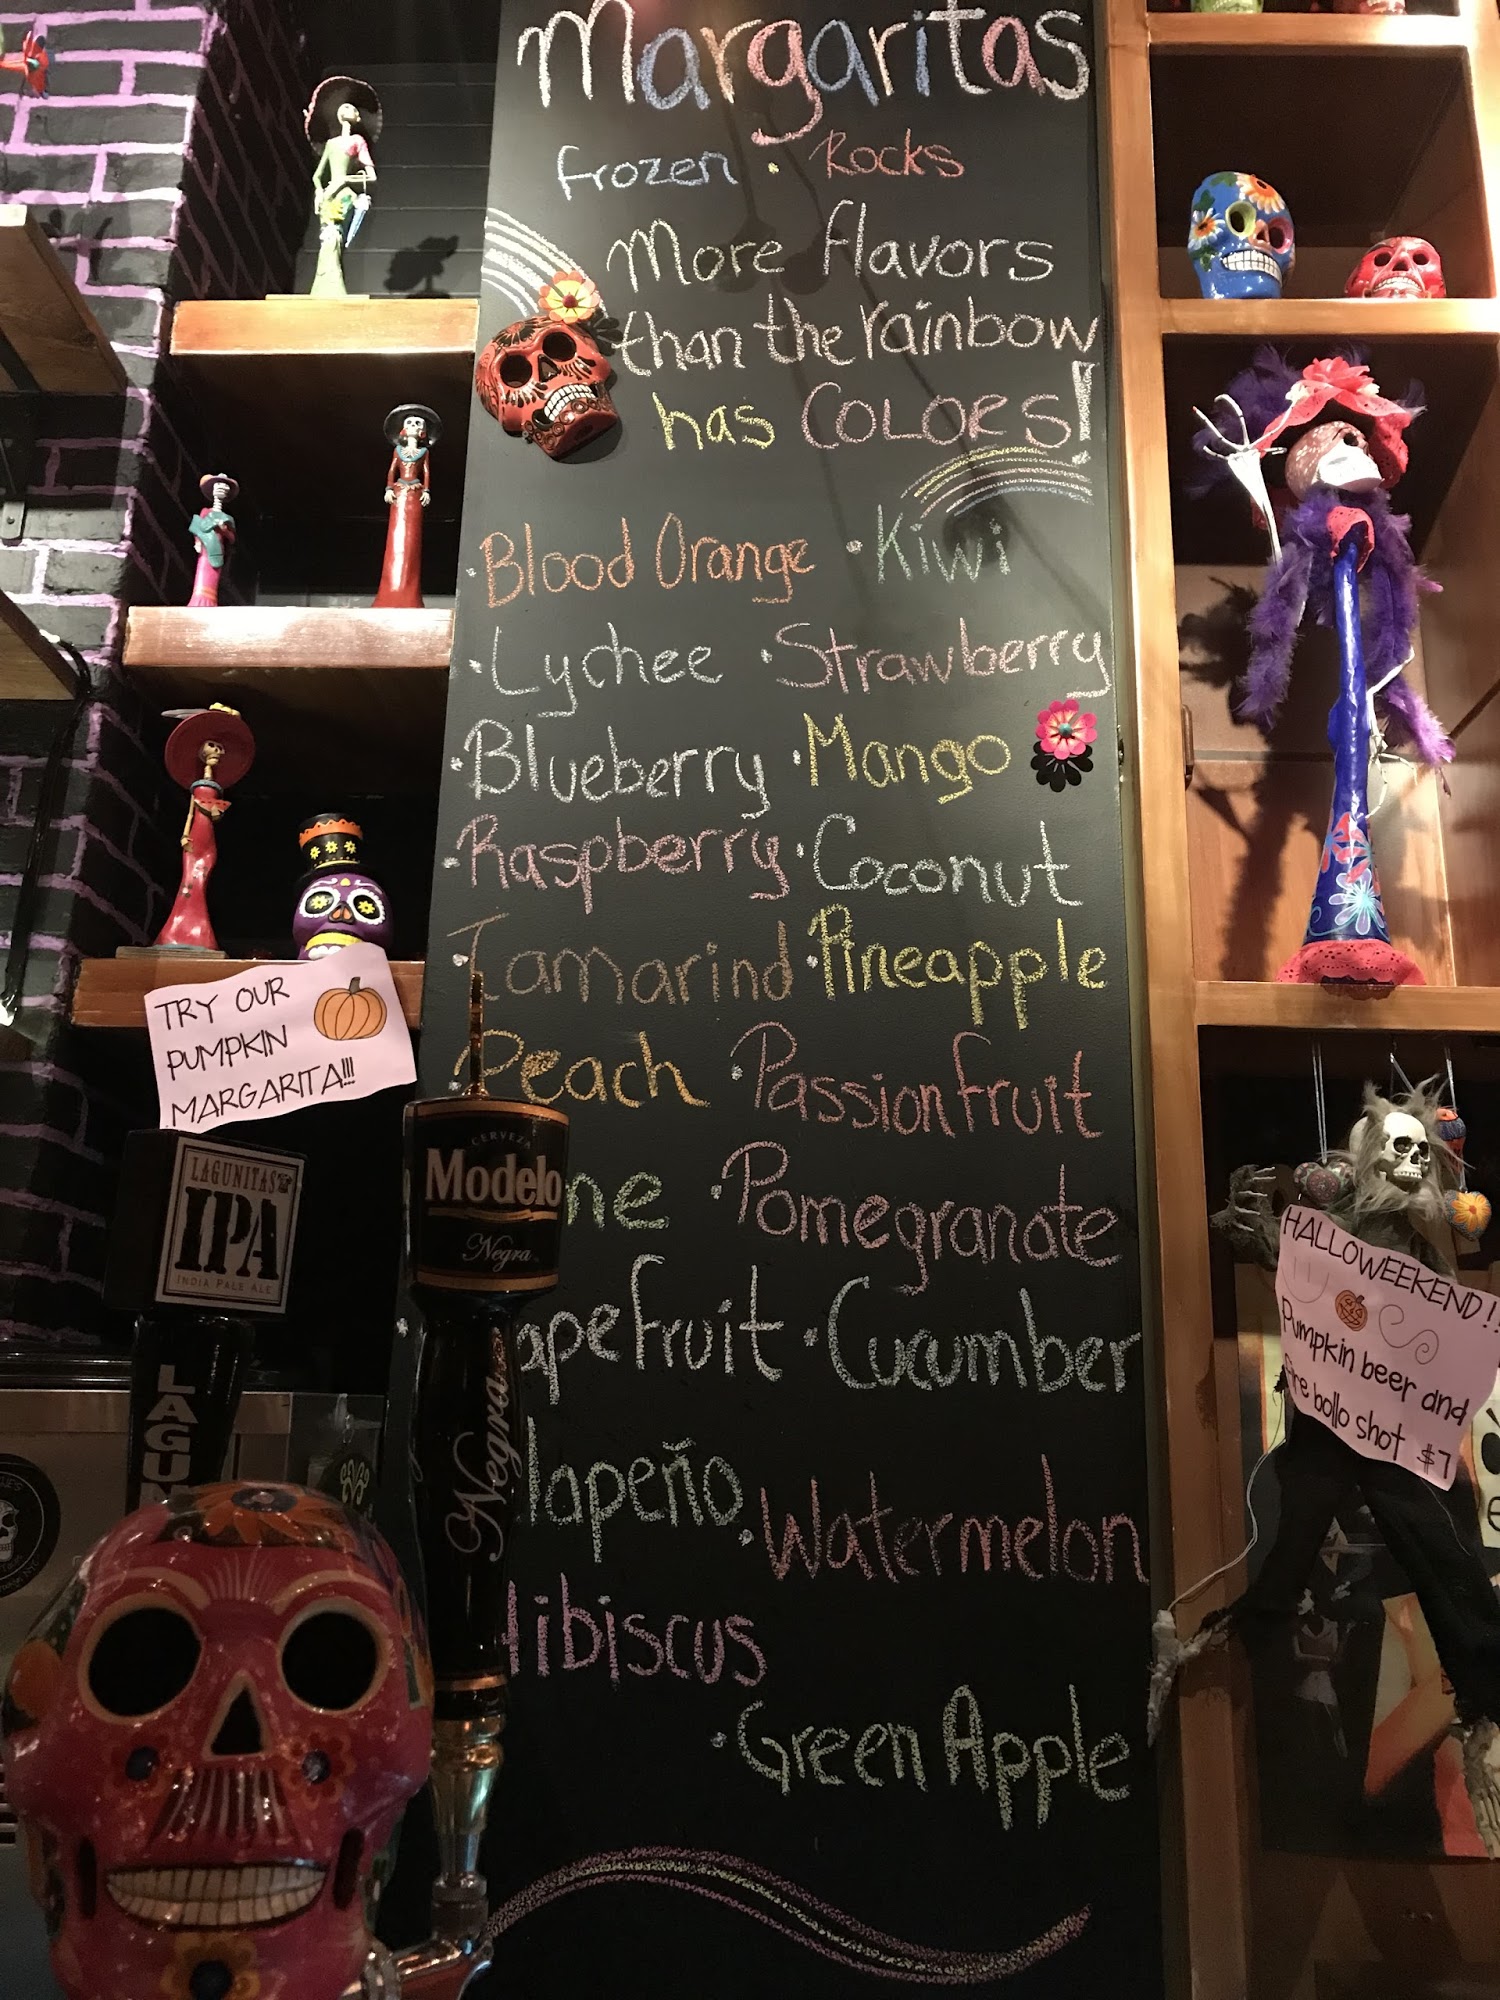 Margaritas
Frozen · Rocks
More flavors
than the rainbow
has COLORS!
· Blood Orange · Kiwi
· Lychee · Strawberry
· Blueberry · Mango
· Raspberry · Coconut
· Tamarind · Pineapple
· Peach · Passionfruit
ne · Pomegranate
apefruit · Cucumber
lapeño · Watermelon
Hibiscus
· Green Apple
TRY OUR
PUMPKIN
MARGARITA!!!
LAGUNITAS
IPA
INDIA PALE ALE
LAGUN
CERVEZA
Modelo
Negra
Negra
HALLOWEEKEND!!
Pumpkin beer and
fire bollo shot $7